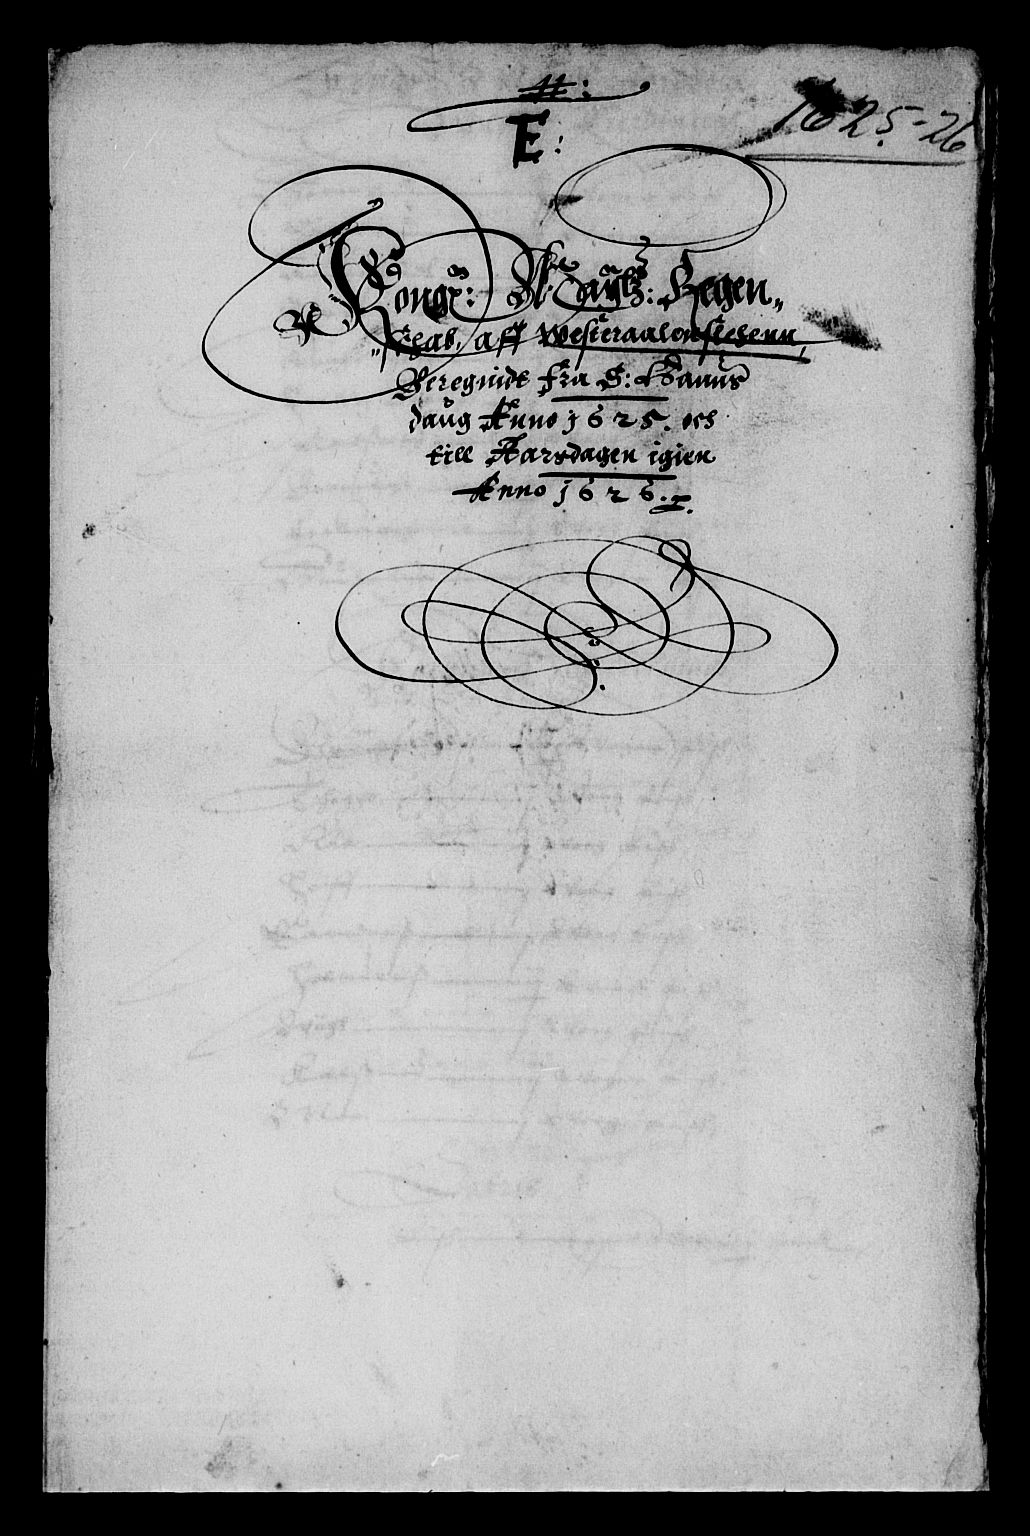 1625-26
E:
Kong: Maÿtz: Regen„
„schab, aff Westeraalens lehenn,
Beregnidt fra S: Hanns
daug Anno 1625. och
till Aarsdagen igien
Anno 1626.